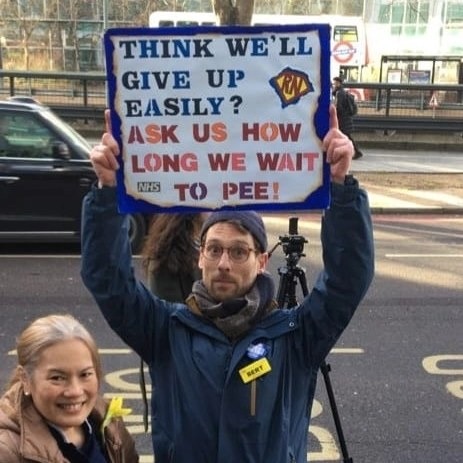 THINK WE'LL
GIVE UP
RN
EASILY?
ASK US HOW
LONG WE WAIT
NHS TO PEE!
BERT